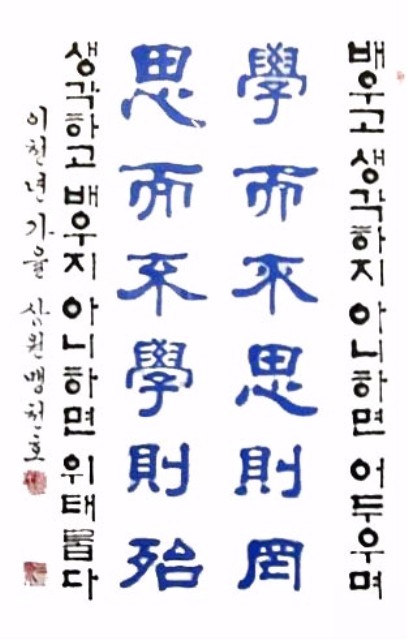 배우고 생각하지 아니하면 어두우며
學而不思則罔
思而不學則殆
생각하고 배우지 아니하면 위태롭다
이천년 가을 삼원 맹천호